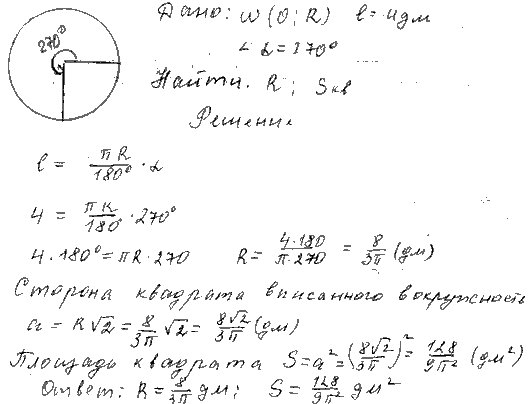 270°
Дано: w (O; R) l = 4 дм
∠ α = 270°
Найти. R; Sкв
Решение
l = πR/180° · α
4 = πR/180° · 270°
4 · 180° = πR · 270 R = 4·180/π·270 = 8/3π (дм)
Сторона квадрата вписанного в окружность
a = R√2 = 8/3π √2 = 8√2/3π (дм)
Площадь квадрата S = a² = (8√2/3π)² = 128/9π² (дм²)
Ответ: R = 8/3π дм; S = 128/9π² дм²